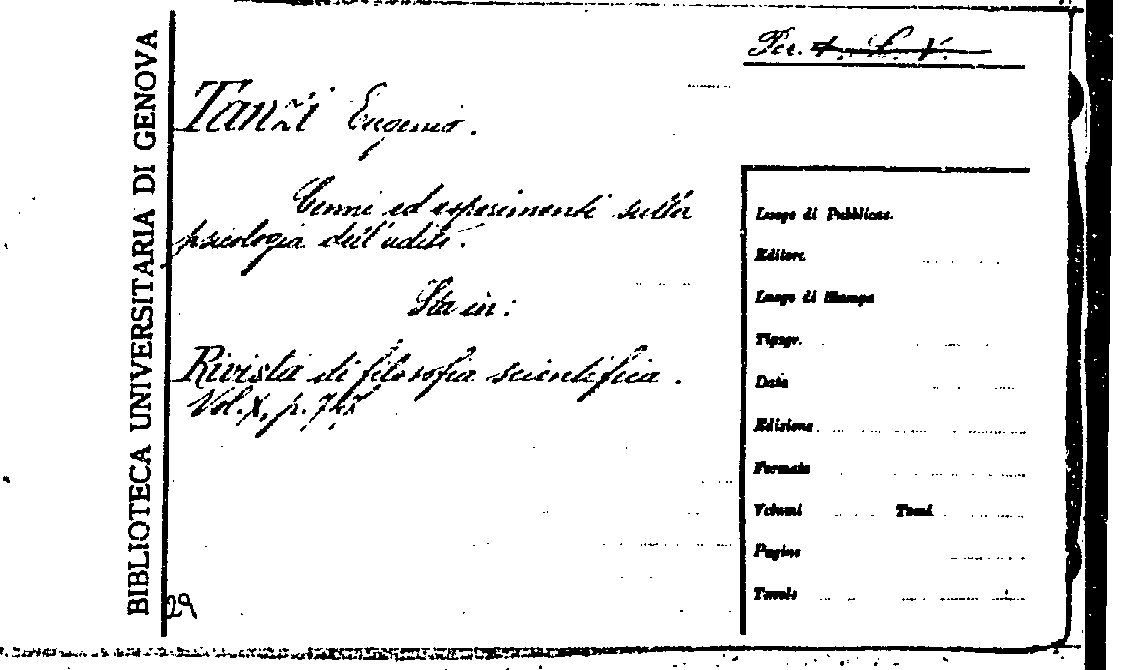 BIBLIOTECA UNIVERSITARIA DI GENOVA
Per. 4. L. V.
Tanzi Eugenio.
Cenni ed esperimenti sulla
psicologia dell'udito.
Sta in:
Rivista di filosofia scientifica.
Vol. X, p.
Luogo di Pubblicaz.
Editore
Luogo di Stampa
Tipogr.
Data
Edizione
Formato
Volumi Tomi
Pagine
Tavole
29